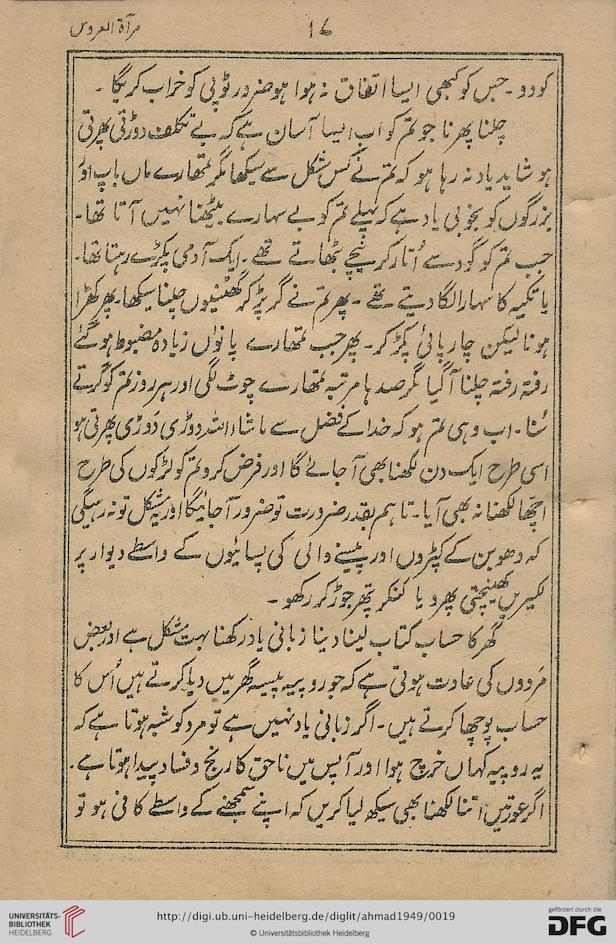 مرآۃ العروس
۱۶
کودو ۔ جس کو کبھی ایسا اتفاق نہ ہوا ہو ضرور ٹوپی کو خراب کریگا ۔
چلنا پھرنا جو تم کو اب ایسا آسان ہے کہ بے تکلف دوڑتی پھرتی
ہو شاید یاد نہ رہا ہو کہ تم نے کس مشکل سے سیکھا مگر تمھارے ماں باپ اور
بزرگوں کو بخوبی یاد ہے کہ پہلے تم کو بے سہارے بیٹھنا نہیں آتا تھا ۔
جب تم کو گود سے اُتار کر نیچے بٹھاتے تھے ۔ ایک آدمی پکڑے رہتا تھا ۔
یا تکیہ کا سہارا لگا دیتے تھے ۔ پھر تم نے گر پڑ کر گھٹنیوں چلنا سیکھا ۔ پھر کھڑا
ہونا لیکن چارپائی پکڑ کر ۔ پھر جب تمھارے پانوں زیادہ مضبوط ہو گئے
رفتہ رفتہ چلنا آ گیا مگر صدہا مرتبہ تمھارے چوٹ لگی اور ہر روز تم کو گرتے
سُنا ۔ اب وہی تم ہو کہ خدا کے فضل سے ماشاء اللہ دوڑی دوڑی پھرتی ہو
اسی طرح ایک دن لکھنا بھی آ جائے گا اور فرض کرو تم کو لڑکوں کی طرح
اچھا لکھنا نہ بھی آیا ۔ تاہم بقدر ضرورت تو ضرور آ جائیگا اور یہ مشکل تو نہ رہیگی
کہ دھوبن کے کپڑوں اور پیسنے والی کی پسائیوں کے واسطے دیوار پر
لکیریں کھینچتی پھرو یا کنکر پتھر جوڑ کر رکھو ۔
گھر کا حساب کتاب لینا دینا زبانی یاد رکھنا بہت مشکل ہے اور بعض
مَردوں کی عادت ہوتی ہے کہ جو روپیہ پیسہ گھر میں دیا کرتے ہیں اُس کا
حساب پوچھا کرتے ہیں ۔ اگر زبانی یاد نہیں ہے تو مرد کو شبہ ہوتا ہے کہ
یہ روپیہ کہاں خرچ ہوا اور آپس میں ناحق کا رنج و فساد پیدا ہوتا ہے ۔
اگر عورتیں اتنا لکھنا بھی سیکھ لیا کریں کہ اپنے سمجھنے کے واسطے کافی ہو تو
UNIVERSITÄTS-
BIBLIOTHEK
HEIDELBERG
http://digi.ub.uni-heidelberg.de/diglit/ahmad1949/0019
© Universitätsbibliothek Heidelberg
gefördert durch die
DFG